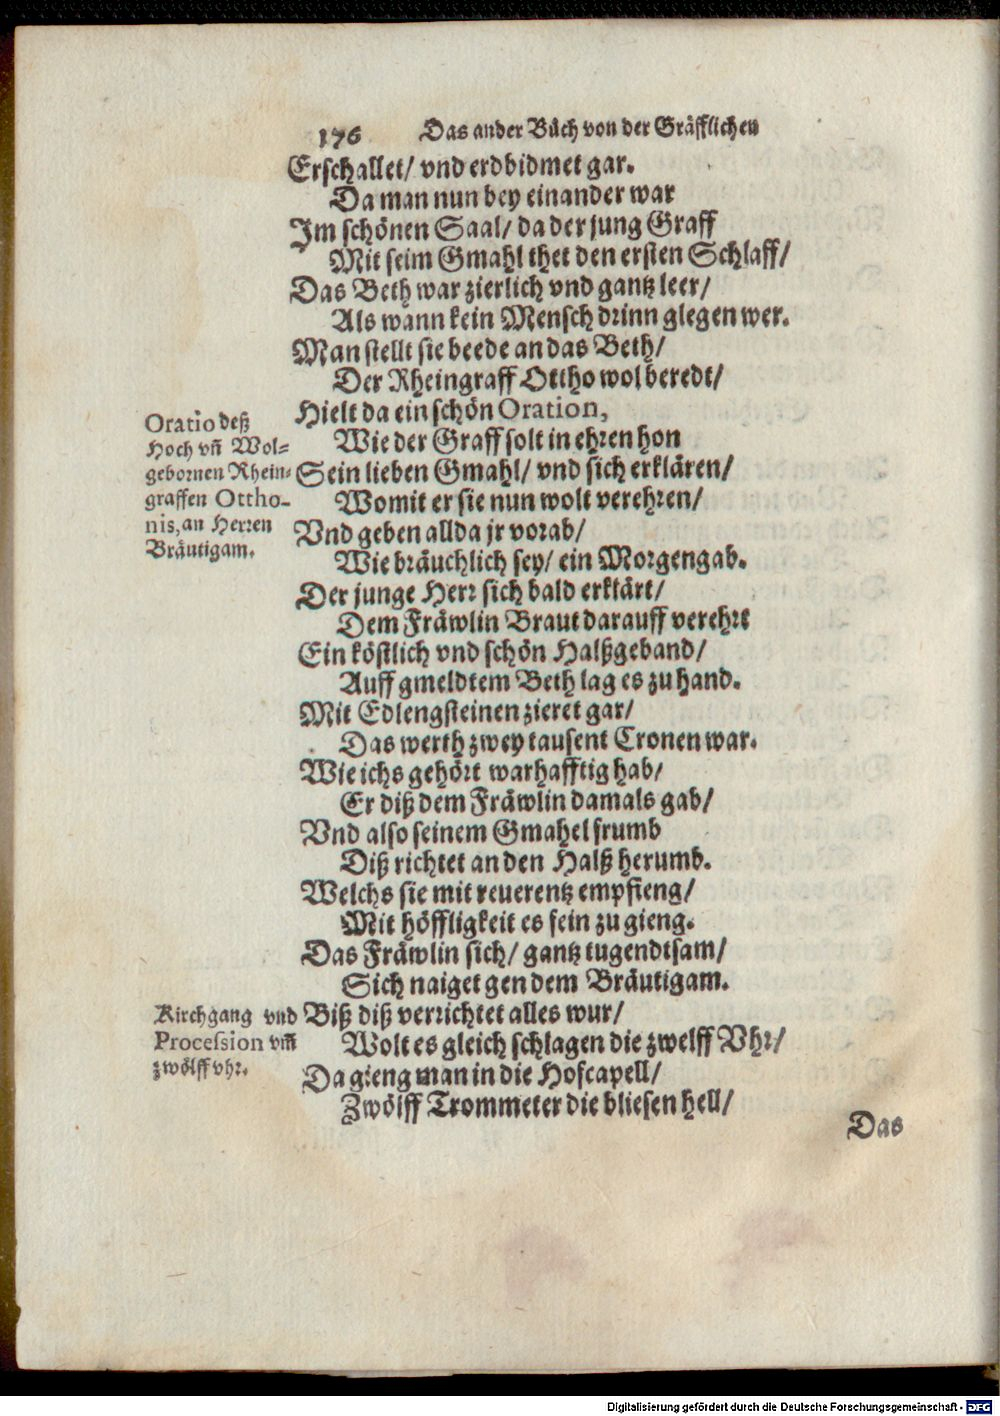 176 Das ander Bůch von der Gräfflichen
Erschallet/ vnd erdbidmet gar.
Da man nun bey einander war
Im schönen Saal/ da der jung Graff
Mit seim Gmahl thet den ersten Schlaff/
Das Beth war zierlich vnd gantz leer/
Als wann kein Mensch drinn glegen wer.
Man stellt sie beede an das Beth/
Der Rheingraff Ottho wol beredt/
Hielt da ein schön Oration,
Wie der Graff solt in ehren hon
Sein lieben Gmahl/ vnd sich erklären/
Womit er sie nun wolt verehren/
Vnd geben allda jr vorab/
Wie bräuchlich sey/ ein Morgengab.
Oratio deß
Hoch vñ Wol-
gebornen Rhein-
graffen Ottho-
nis, an Herren
Bräutigam.
Der junge Herr sich bald erklärt/
Dem Fräwlin Braut darauff verehrt
Ein köstlich vnd schön Halßgeband/
Auff gmeldtem Beth lag es zu hand.
Mit Edlengsteinen zieret gar/
Das werth zwey tausent Cronen war.
Wie ichs gehört warhafftig hab/
Er diß dem Fräwlin damals gab/
Vnd also seinem Gmahel frumb
Diß richtet an den Halß herumb.
Welchs sie mit reuerentz empfieng/
Mit höffligkeit es fein zu gieng.
Das Fräwlin sich/ gantz tugendtsam/
Sich naiget gen dem Bräutigam.
Biß diß verrichtet alles wur/
Wolt es gleich schlagen die zwelff Vhr/
Da gieng man in die Hofcapell/
Zwölff Trommeter die bliesen hell/
Kirchgang vnd
Procession vm̃
zwölff vhr.
Das
Digitalisierung gefördert durch die Deutsche Forschungsgemeinschaft - DFG